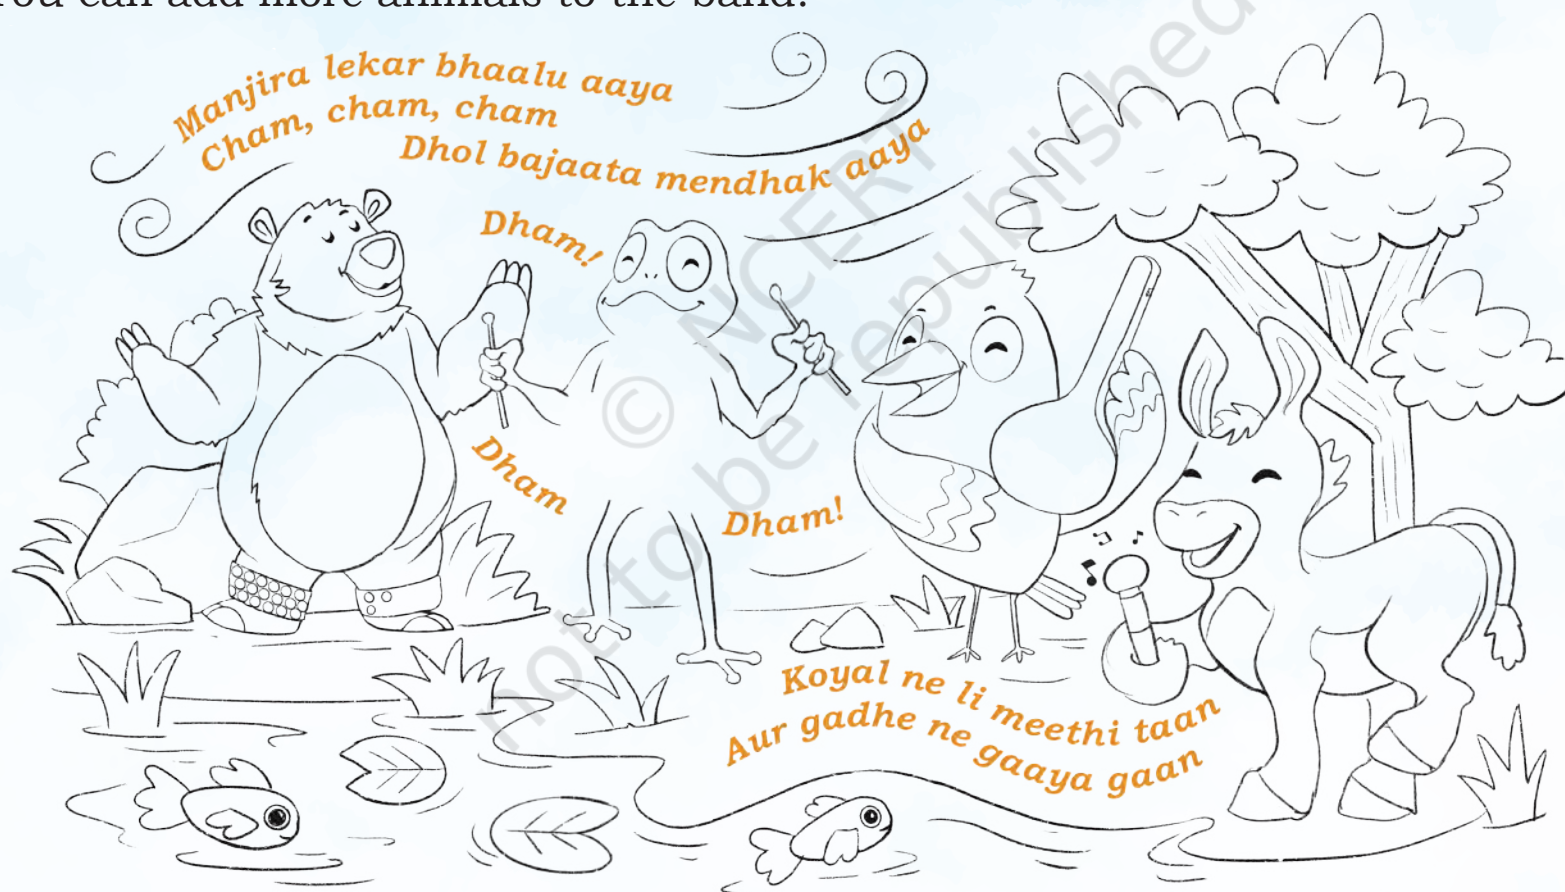 You can add more animals to the band.
Manjira lekar bhaalu aaya
Cham, cham, cham
Dhol bajaata mendhak aaya
Dham!
Dham
Dham!
Koyal ne li meethi taan
Aur gadhe ne gaaya gaan
© NCERT
not to be republished